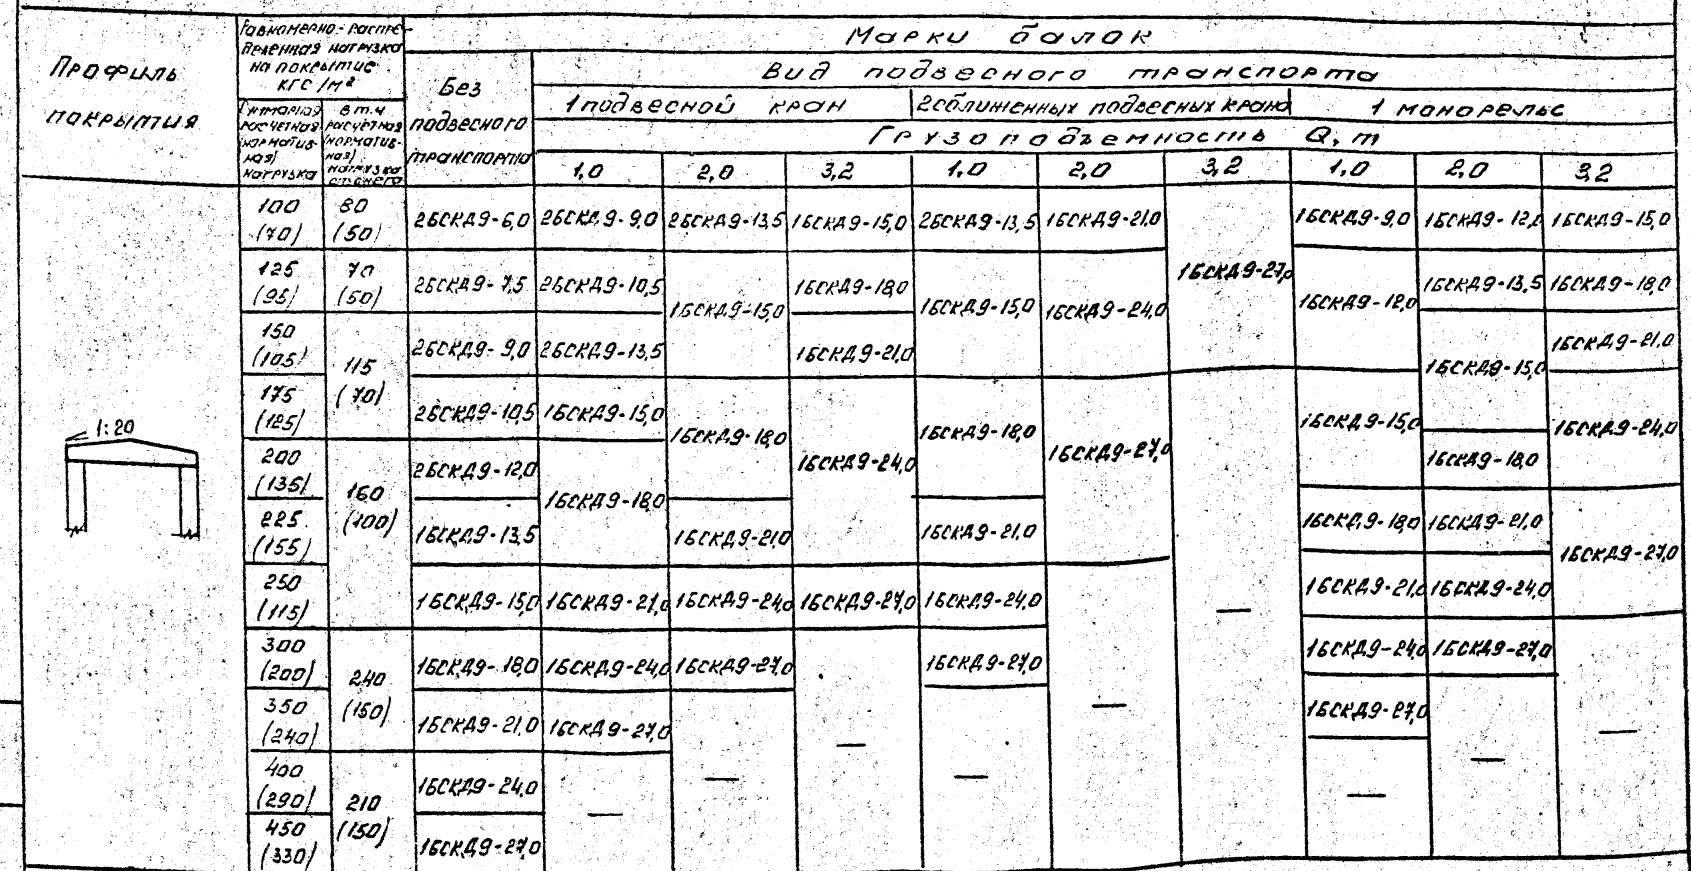 Профиль покрытия
Равномерно-распределенная нагрузка на покрытие кгс/м²
Суммарная расчетная (нормативная) нагрузка
в т.ч расчетная (нормативная) нагрузка от снега
Марки балок
Без подвесного транспорта
Вид подвесного транспорта
1 подвесной кран
2 сближенных подвесных крана
1 монорельс
Грузоподъемность Q, т
1,0 2,0 3,2 1,0 2,0 3,2 1,0 2,0 3,2
1:20
100 (70) 80 (50) 2БСКД9-6,0 2БСКД9-9,0 2БСКД9-13,5 1БСКД9-15,0 2БСКД9-13,5 1БСКД9-21,0 1БСКД9-9,0 1БСКД9-12,0 1БСКД9-15,0
125 (95) 70 (50) 2БСКД9-7,5 2БСКД9-10,5 1БСКД9-15,0 1БСКД9-18,0 1БСКД9-15,0 1БСКД9-24,0 1БСКД9-27,0 1БСКД9-12,0 1БСКД9-13,5 1БСКД9-18,0
150 (105) 115 (70) 2БСКД9-9,0 2БСКД9-13,5 1БСКД9-21,0 1БСКД9-15,0 1БСКД9-21,0
175 (125) 2БСКД9-10,5 1БСКД9-15,0 1БСКД9-18,0 1БСКД9-18,0 1БСКД9-15,0 1БСКД9-24,0
200 (135) 160 (100) 2БСКД9-12,0 1БСКД9-18,0 1БСКД9-24,0 1БСКД9-27,0 1БСКД9-18,0
225 (155) 1БСКД9-13,5 1БСКД9-21,0 1БСКД9-21,0 1БСКД9-18,0 1БСКД9-21,0 1БСКД9-27,0
250 (115) 1БСКД9-15,0 1БСКД9-21,0 1БСКД9-24,0 1БСКД9-27,0 1БСКД9-24,0 — 1БСКД9-21,0 1БСКД9-24,0
300 (200) 240 (150) 1БСКД9-18,0 1БСКД9-24,0 1БСКД9-27,0 1БСКД9-27,0 1БСКД9-24,0 1БСКД9-27,0
350 (240) 1БСКД9-21,0 1БСКД9-27,0 — — 1БСКД9-27,0 —
400 (290) 210 (150) 1БСКД9-24,0 — — — — —
450 (330) 1БСКД9-27,0